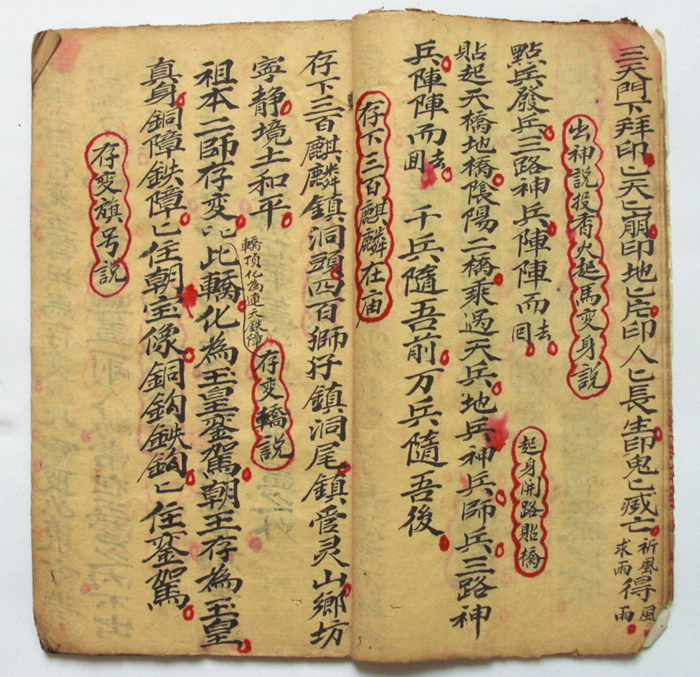 三天門下拜印匕天匕崩印地匕片印人匕長生印鬼匕滅亡祈風求雨得風雨
出神説投香火起馬变身説
點兵發兵三路神兵陣陣而去回
起身開路貼橋
貼起天橋地橋陰陽二橋乘過天兵地兵神兵師兵三路神
兵陣陣而去回 千兵隨吾前万兵隨吾後
存下三百麒麟在
存下三百麒麟鎮洞頭四百獅仔鎮洞尾鎮管灵山鄉坊
寧静境土和平
轎頂化為連天鉄障
存变轎説
祖本二師存变匕此轎化為玉皇銮駕朝王存為玉皇
真身銅障鉄障匕住朝宝像銅鈎鉄鈎匕住銮駕
存变旗号説